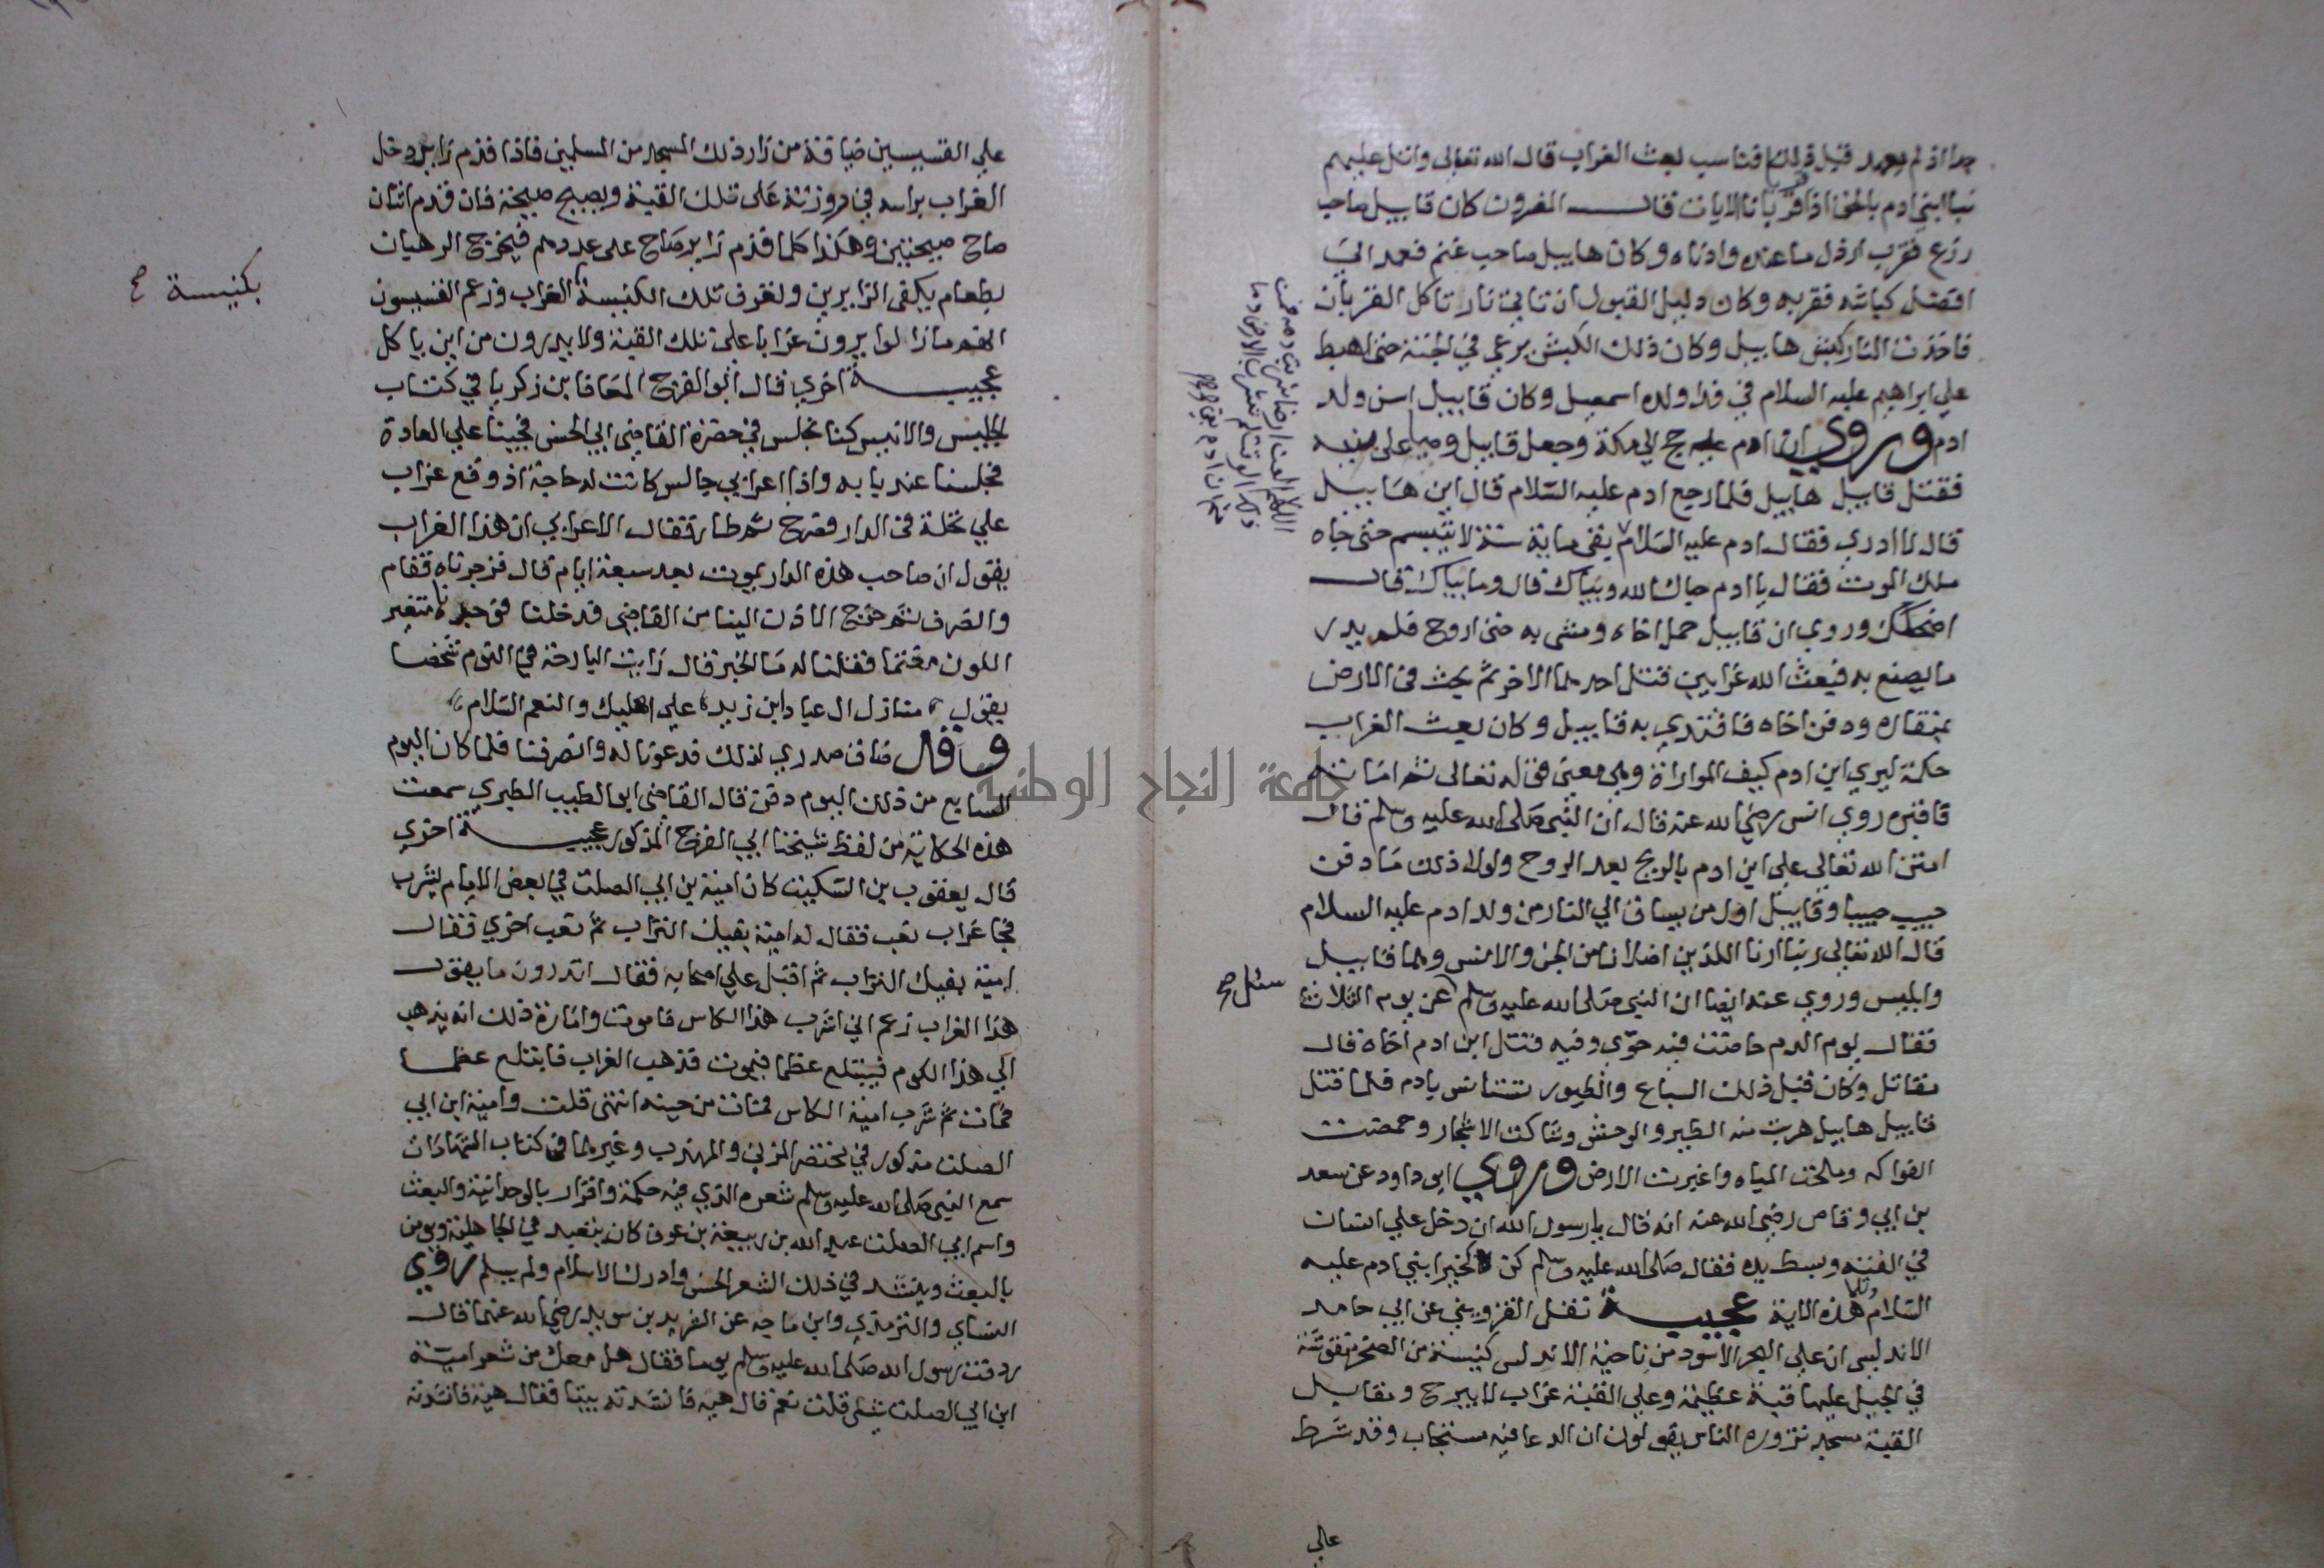 جدا اذ لم يعهد قبل ذلك فناسب بعث الغراب قال الله تعالى واتل عليهم
نبا ابني ادم بالحق اذ قربا قربانا الايات قال المفسرون كان قابيل صاحب
زرع فقرب ارذل ما عنده وادناه وكان هابيل صاحب غنم فعمد الى
افضل كباشه فقربه وكان دليل القبول ان تاتي نار تاكل القربان
فاخذت النار كبش هابيل وكان ذلك الكبش يرعى في الجنة حتى اهبط
على ابراهيم عليه السلام في فدا ولده اسمعيل وكان قابيل اسن ولد
ادم وروي ان ادم عليه حج الي مكة وجعل قابيل وصيا على بنيه
فقتل قابيل هابيل فلما رجع ادم عليه السلام قال اين هابيل
قال لا ادري فقال ادم عليه السلام بقي ماية سنة لا يتبسم حتى جاه
ملك الموت فقال يا ادم حياك الله وبياك قال وما بياك قال
اضحكك وروي ان قابيل حمل اخاه ومشى به حتى اروح فلم يدر
ما يصنع به فبعث الله غرابين فقتل احدهما الاخر ثم بحث في الارض
بمنقاره ودفن اخاه فاقتدي به قابيل وكان بعث الغراب
حكمة ليري ابن ادم كيف المواراة وهي معنى قوله تعالى ثم اماته
فاقبره روي انس رضي الله عنه قال ان النبي صلى الله عليه وسلم قال
امتن الله تعالي علي ابن ادم بالريح بعد الروح ولولا ذلك ما دفن
حبيب حبيبا وقابيل اول من يساق الي النار من ولد ادم عليه السلام
قال الله تعالى ربنا ارنا اللذين اضلانا من الجن والانس وهما قابيل
وابليس وروي عنه ايضا ان النبي صلى الله عليه وسلم عن يوم الثلاثا
سئل صح
فقال يوم الدم حاضت فيه حوى وفيه قتل ابن ادم اخاه قال
مقاتل وكان قبل ذلك السباع والطيور تستانس بادم فلما قتل
قابيل هابيل هربت منه الطير والوحش وشاكت الاشجار وحمضت
الفواكه وملحت المياه واغبرت الارض وروي ابي داود عن سعد
بن ابي وقاص رضي الله عنه انه قال يا رسول الله ان دخل علي انسان
في الفتنه وبسط يده فقال صلى الله عليه وسلم كن كخير ابني ادم عليه
السلام وتلا هذه الاية عجيبة نقل القزويني عن ابي حامد
الاندلسي ان علي البحر الاسود من ناحية الاندلس كنيسة من الصخر منقوشة
في الجبل عليها قبة عظيمة وعلي القبة غراب لا يبرح ومقابل
القبة مسجد تزوره الناس يقولون ان الدعا فيه مستجاب وقد شرط
علي
علي القسيسين ضيافة من زار ذلك المسجد من المسلمين فاذا قدم زاير دخل
الغراب براسه في روزنة على تلك القبة وبصيح صيحة فان قدم اثنان
صاح صيحتين وهكذا كلما قدم زاير صاح على عددهم فيخرج الرهبان
بطعام يكفي الزايرين ولتعرف تلك الكنيسة الغراب وزعم القسيسون
بكنيسة صح
انهم ما زالوا يرون غرابا علي تلك القبة ولا يدرون من اين ياكل
عجيبة اخري قال ابو الفرج المعافا بن زكريا في كتاب
الجليس والانيس كنا نجلس في حضرة القاضي ابي الحسن فجينا علي العادة
فجلسنا عند بابه واذا اعرابي جالس كانت له حاجة اذ وقع غراب
علي نخلة في الدار فصرخ ثم طار فقال الاعرابي ان هذا الغراب
يقول ان صاحب هذه الدار يموت بعد سبعة ايام قال فزجرناه فقام
وانصرف ثم خرج الاذن الينا من القاضي فدخلنا فوجدناه متغير
اللون مغتما فقلنا له ما الخبر قال رايت البارحة في النوم شخصا
يقول منازل ال عباد ابن زيد علي اهليك والنعم السلام
وقال ضاق صدري لذلك فدعونا له وانصرفنا فلما كان اليوم
السابع من ذلك اليوم دفن قال القاضي ابو الطيب الطبري سمعت
هذه الحكاية من لفظ شيخنا ابي الفرج المذكور عجيبة اخري
قال يعقوب بن السكيت كان امية بن ابي الصلت في بعض الايام يشرب
فجا غراب نعب فقال له امية بفيك التراب ثم نعب اخري فقال
امية بفيك التراب ثم اقبل علي اصحابه فقال اتدرون ما يقول
هذا الغراب زعم اني اشرب هذا الكاس فاموت وامارة ذلك انه يذهب
الي هذا الكوم فيبتلع عظما فيموت فذهب الغراب فابتلع عظما
فمات ثم شرب امية الكاس فمات من حينه انتهى قلت وامية ابن ابي
الصلت مذكور في مختصر المزني والمهذب وغيرهما في كتاب الشهادات
سمع النبي صلى الله عليه وسلم شعره الذي فيه حكمة واقرار بالوحدانية والبعث
واسم ابي الصلت عبد الله بن ربيعة بن عوف كان يتعبد في الجاهلية ويومن
بالبعث وينشد في ذلك الشعر الحسن وادرك الاسلام ولم يسلم روي
النساي والترمذي وابن ماجه عن الفريد بن سويد رضي الله عنهما قال
ردفت رسول الله صلى الله عليه وسلم يوما فقال هل معك من شعر امية
ابن ابي الصلت شي قلت نعم قال هيه فانشدته بيتا فقال هيه فانشدته
جامعة النجاح الوطنية